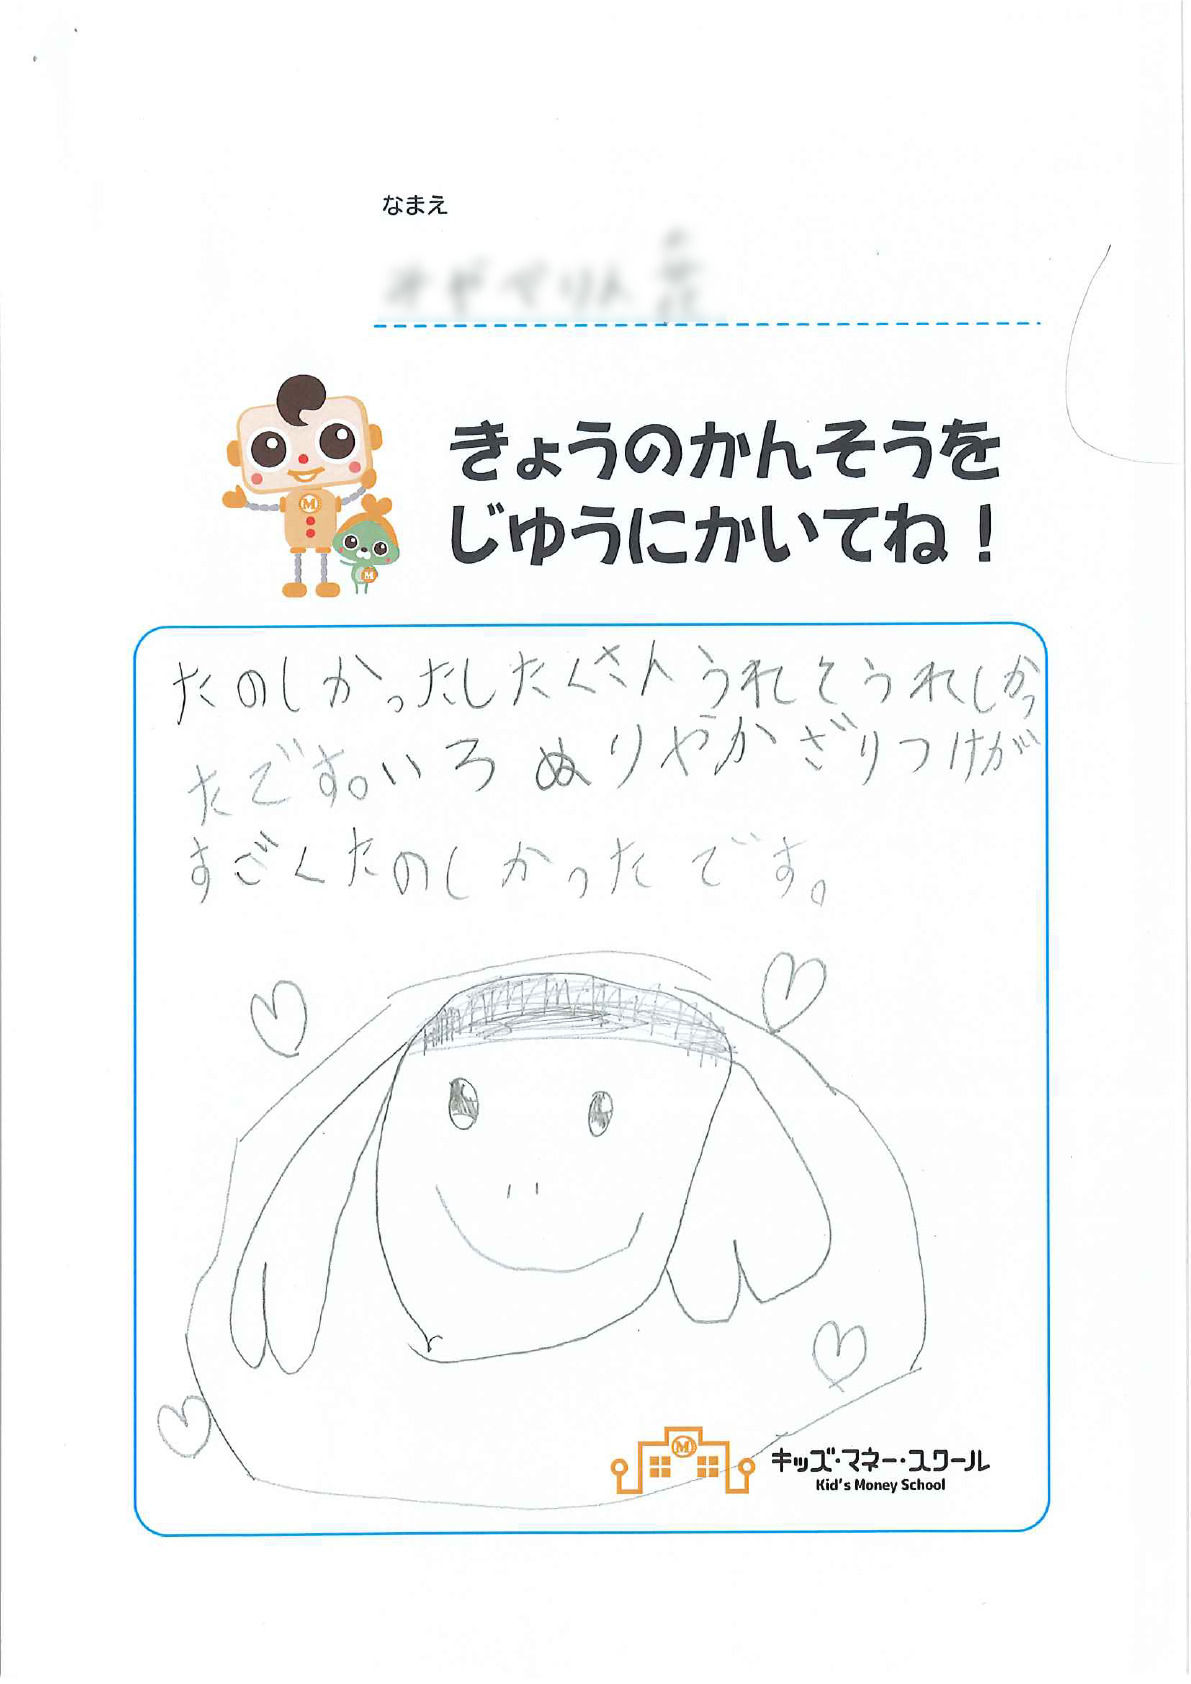 なまえ
きょうのかんそうを
じゆうにかいてね！
たのしかったしたくさんうれてうれしかっ
たです。いろぬりやかざりつけが
すごくたのしかったです。
キッズ・マネー・スクール
Kid's Money School